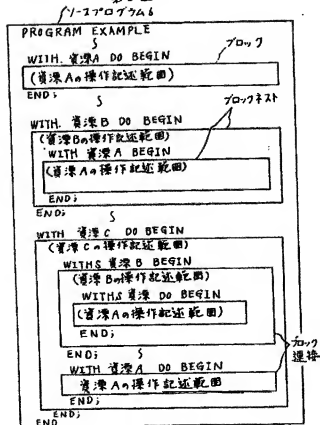 ソースプログラム6
PROGRAM EXAMPLE
WITH. 資源A DO BEGIN
ブロック
(資源Aの操作記述範囲)
END;
WITH. 資源B DO BEGIN
ブロックネスト
(資源Bの操作記述範囲)
WITH 資源A BEGIN
(資源Aの操作記述範囲)
END;
END;
WITH 資源C DO BEGIN
(資源Cの操作記述範囲)
WITHS 資源B BEGIN
(資源Bの操作記述範囲)
WITHS 資源 DO BEGIN
(資源Aの操作記述範囲)
END;
END;
ブロック
連接
WITH 資源A DO BEGIN
資源Aの操作記述範囲
END;
END;
END